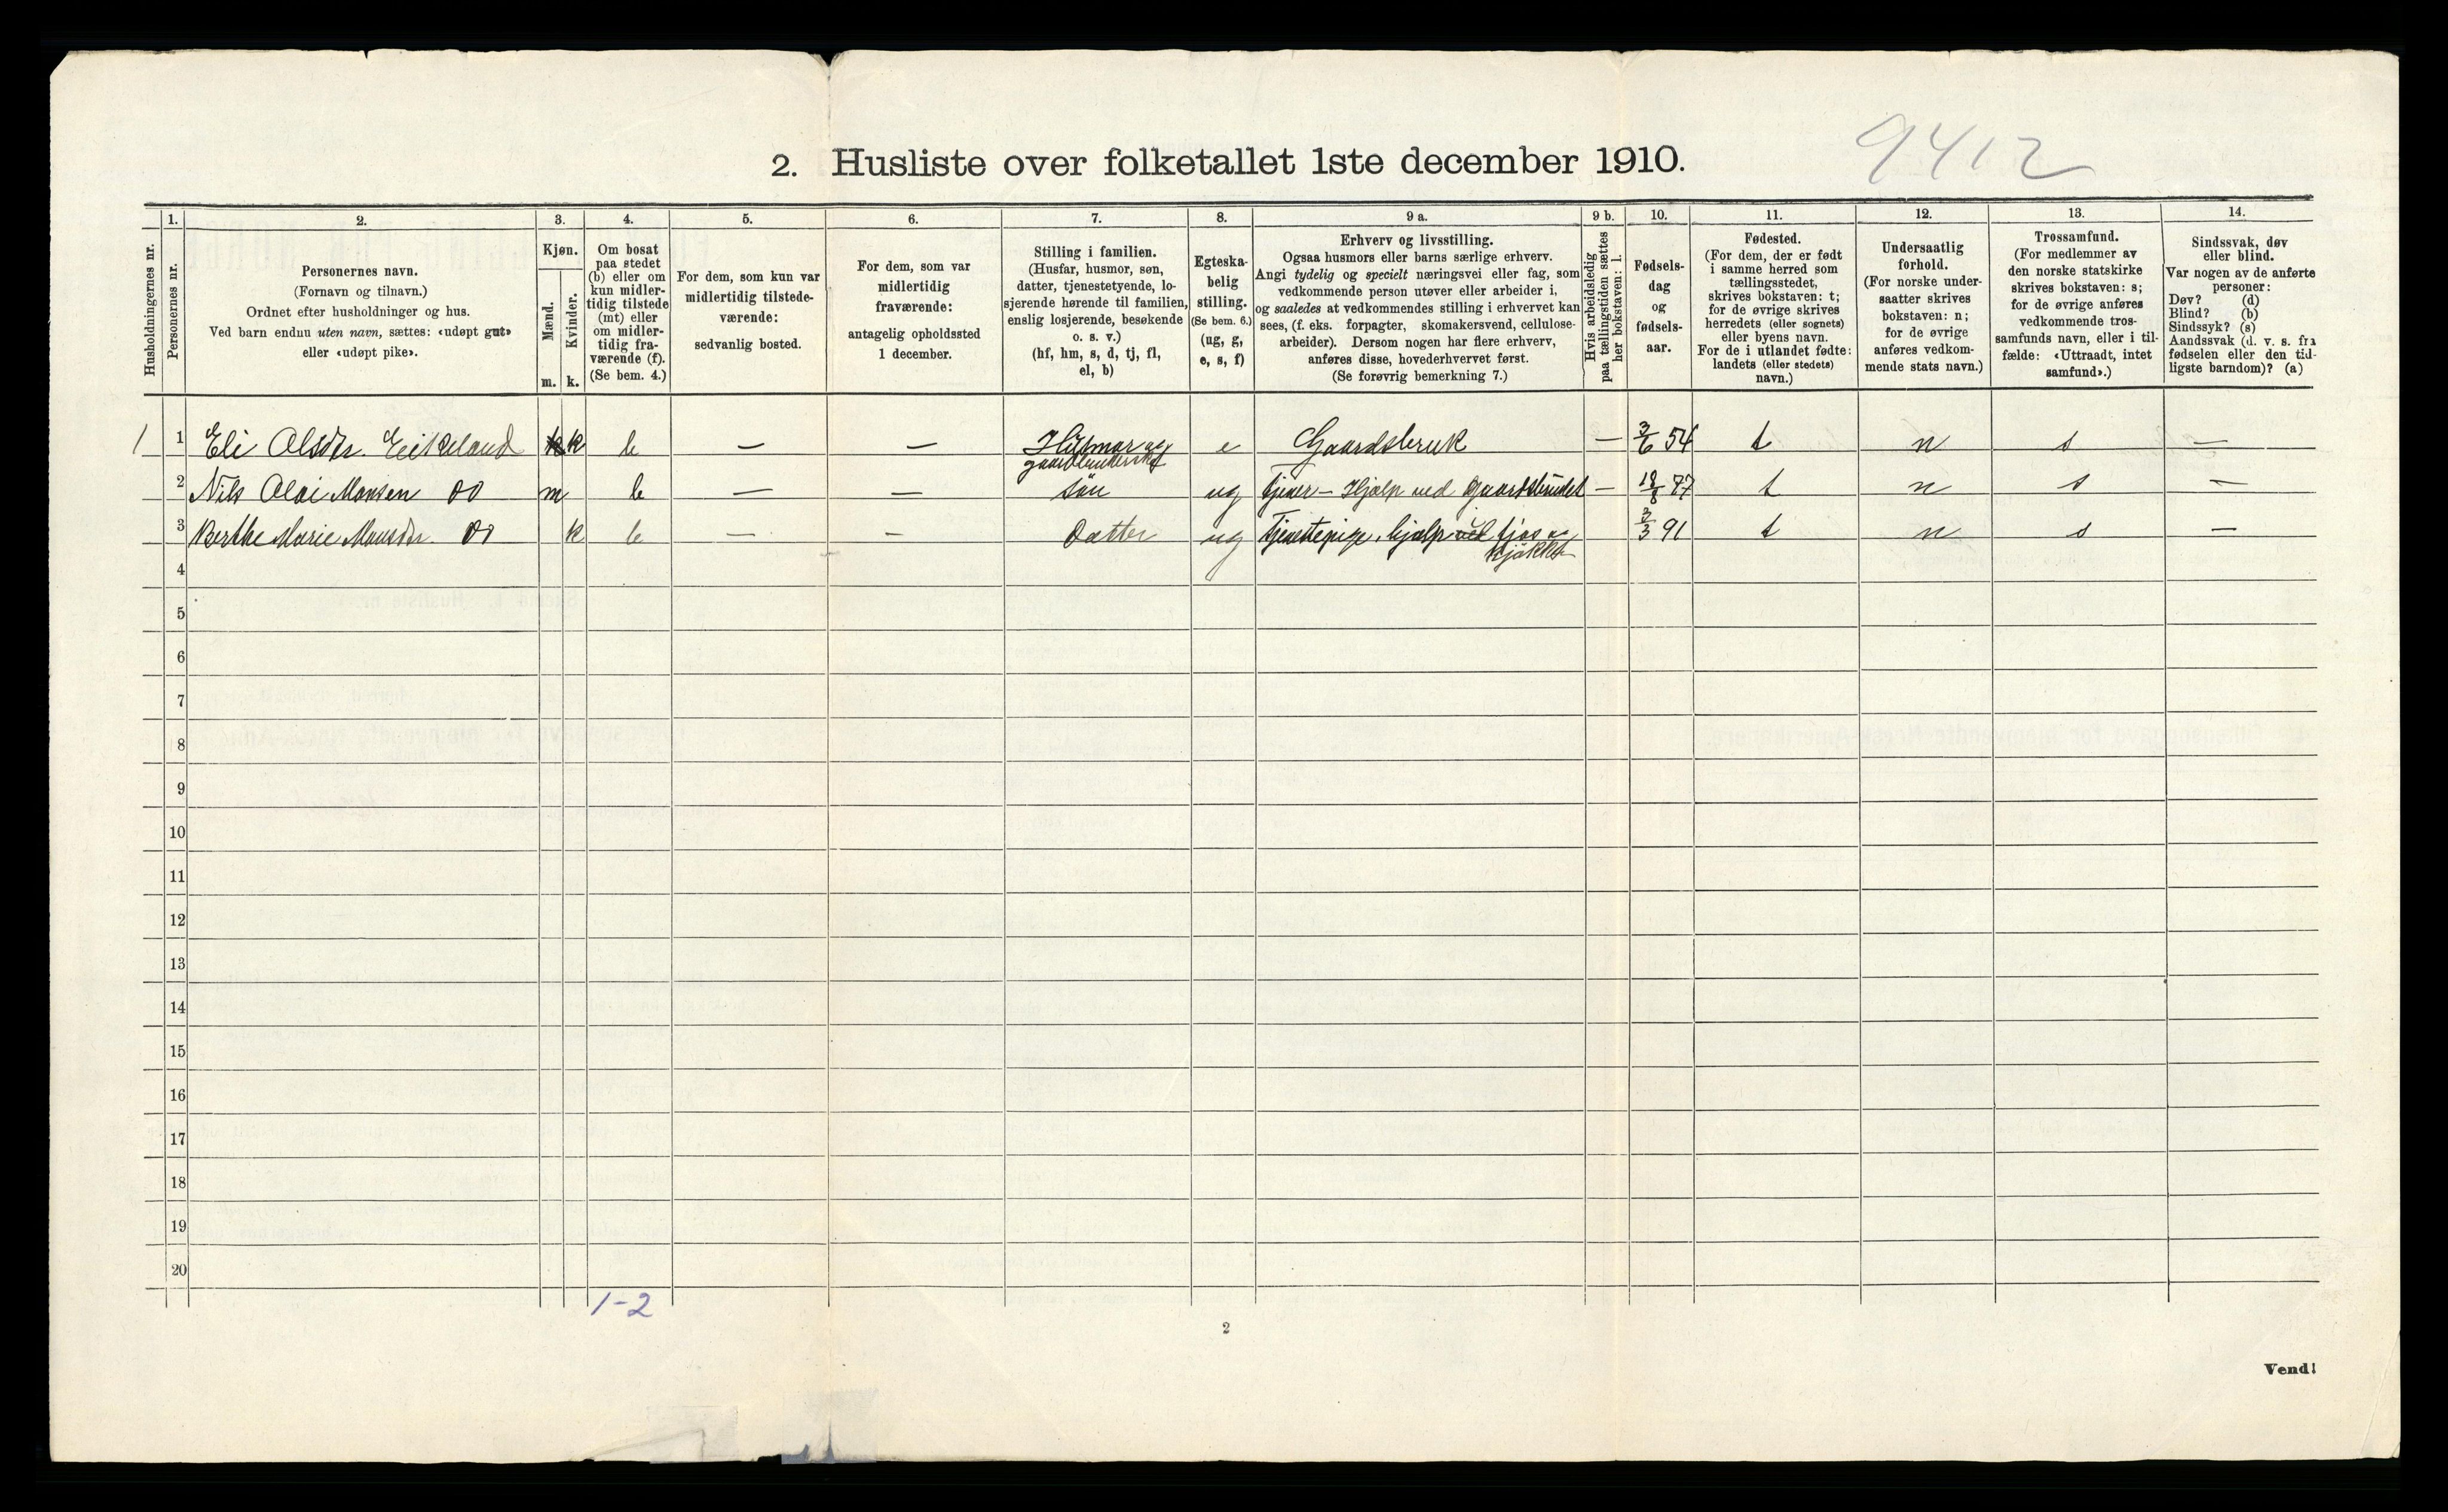 9412
2. Husliste over folketallet 1ste december 1910.
Husholdningernes nr.
1.
Personernes nr.
2.
Personernes navn.
(Fornavn og tilnavn.)
Ordnet efter husholdninger og hus.
Ved barn endnu uten navn, sættes: «udøpt gut»
eller «udøpt pike».
3.
Kjøn.
Mænd.
Kvinder.
m. k.
4.
Om bosat
paa stedet
(b) eller om
kun midler-
tidig tilstede
(mt) eller
om midler-
tidig fra-
værende (f).
(Se bem. 4.)
5.
For dem, som kun var
midlertidig tilstede-
værende:
sedvanlig bosted.
6.
For dem, som var
midlertidig
fraværende:
antagelig opholdssted
1 december.
7.
Stilling i familien.
(Husfar, husmor, søn,
datter, tjenestetyende, lo-
sjerende hørende til familien,
enslig losjerende, besøkende
o. s. v.)
(hf, hm, s, d, tj, fl,
el, b)
8.
Egteska-
belig
stilling.
(Se bem. 6.)
(ug, g,
e, s, f)
9 a.
Erhverv og livsstilling.
Ogsaa husmors eller barns særlige erhverv.
Angi tydelig og specielt næringsvei eller fag, som
vedkommende person utøver eller arbeider i,
og saaledes at vedkommendes stilling i erhvervet kan
sees, (f. eks. forpagter, skomakersvend, cellulose-
arbeider). Dersom nogen har flere erhverv,
anføres disse, hovederhvervet først.
(Se forøvrig bemerkning 7.)
9 b.
Hvis arbeidsledig
paa tællingstiden sættes
her bokstaven: l.
10.
Fødsels-
dag
og
fødsels-
aar.
11.
Fødested.
(For dem, der er født
i samme herred som
tællingsstedet,
skrives bokstaven: t;
for de øvrige skrives
herredets (eller sognets)
eller byens navn.
For de i utlandet fødte:
landets (eller stedets)
navn.)
12.
Undersaatlig
forhold.
(For norske under-
saatter skrives
bokstaven: n;
for de øvrige
anføres vedkom-
mende stats navn.)
13.
Trossamfund.
(For medlemmer av
den norske statskirke
skrives bokstaven: s;
for de øvrige anføres
vedkommende tros-
samfunds navn, eller i til-
fælde: «Uttraadt, intet
samfund».)
14.
Sindssvak, døv
eller blind.
Var nogen av de anførte
personer:
Døv? (d)
Blind? (b)
Sindssyk? (s)
Aandssvak (d. v. s. fra
fødselen eller den tid-
ligste barndom)? (a)
1 1 Eli Olsdtr. Eikeland k b — — Husmor og e Gaardsbruk — 3/6 54 t n s —
2 Nils Olai Monsen do m b — — søn ug Tjener – Hjælp ved Gaardsbruket — 18/8 87 t n s —
3 Berthe Marie Monsdtr. do k b — — Datter ug Tjenestepige, hjælp ved fjøs og 3/3 91 t n s —
kjøkken
4
5
6
7
8
9
10
11
12
13
14
15
16
17
18
19
20
1-2
2
Vend!